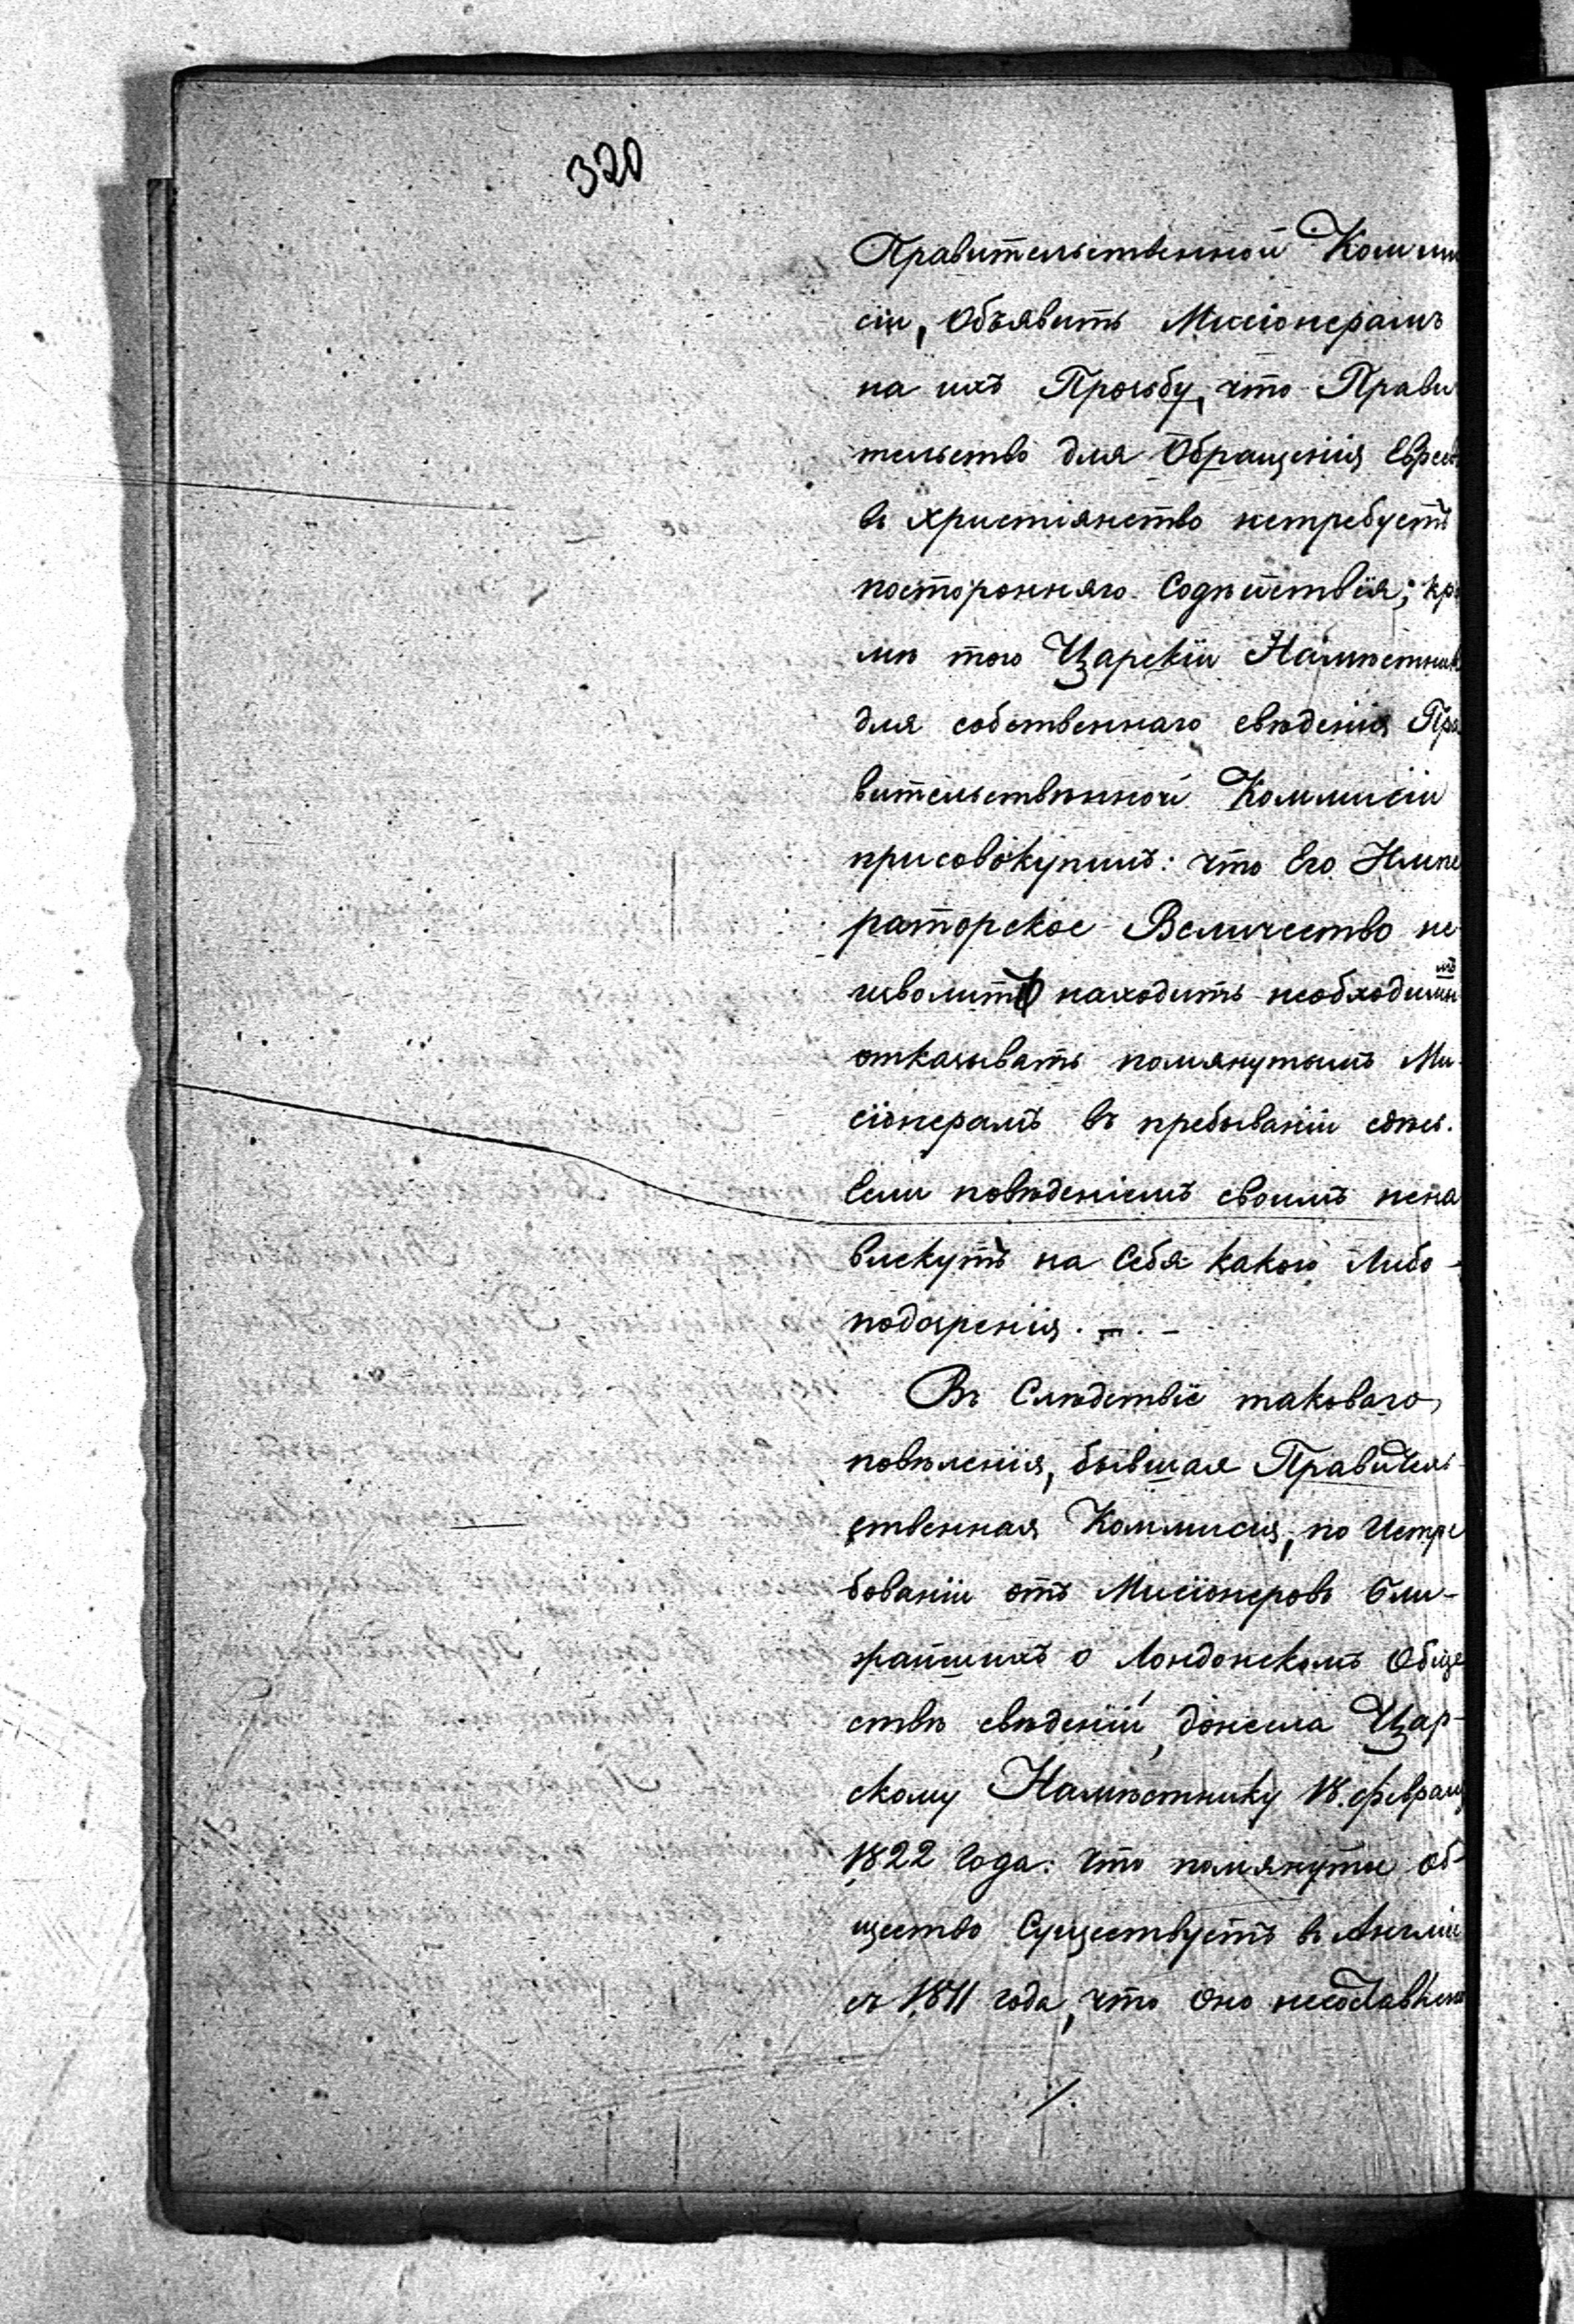 320
Правительственной Комми
сіи, Объявить Мисіонерамъ
на ихъ Прозьбу, что Прави
тельство для Обращенія Евреевъ
въ христіянство нетребуетъ
посторонняго Содѣйствія; кро
мѣ того Царскій Намѣстникъ
для собственнаго свѣденія Пра
вительственной Коммисіи
присовокупилъ: что Его Импе
раторское Величество не
изволитъ находить необходимымъ
отказывать помянутымъ Ми-
сіонерамъ въ пребываніи здѣсь.
Если повѣденіемъ своимъ нена
влекутъ на Себя какого Либо-
подозренія. — . —
Въ Слѣдствіе таковаго
повѣленія, бывшая Правитель-
ственная Коммисія, по Истре
бованіи отъ Мисіонеровъ бли-
жайшихъ о Лондонскомъ Обще
ствѣ свѣденій, донесла Цар-
скому Намѣстнику 18. февраля
1822 Года: что помянутое об-
щество Существуетъ въ Англіи
съ 1811 года, что оно несоставлено
/.